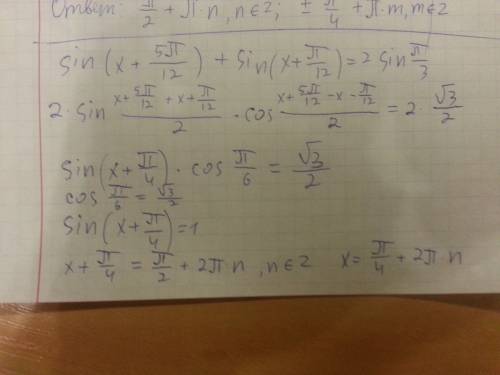 Ответ: π/2 + π·n, n∈Z; ± π/4 + π·m, m∈Z
sin(x + 5π/12) + sin(x + π/12) = 2 sin π/3
2·sin (x + 5π/12 + x + π/12)/2 · cos (x + 5π/12 - x - π/12)/2 = 2·√3/2
sin(x + π/4) · cos π/6 = √3/2
cos π/6 = √3/2
sin(x + π/4) = 1
x + π/4 = π/2 + 2π·n, n∈Z x = π/4 + 2π·n